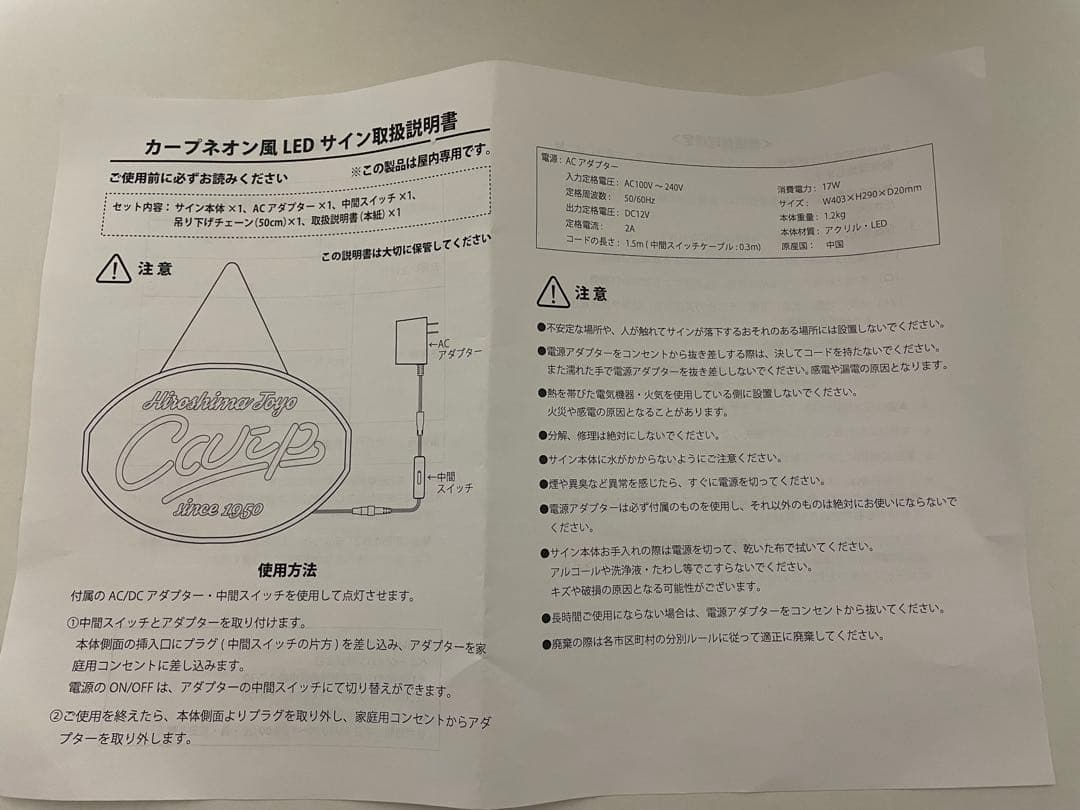 カープネオン風 LED サイン取扱説明書
ご使用前に必ずお読みください
※この製品は屋内専用です。
セット内容： サイン本体 ×1、AC アダプター ×1、中間スイッチ ×1、
吊り下げチェーン（50cm）×1、取扱説明書（本紙）×1
この説明書は大切に保管してください
注意
Hiroshima Toyo
Carp
since 1950
←AC
アダプター
←中間
スイッチ
使用方法
付属の AC/DC アダプター・中間スイッチを使用して点灯させます。
①中間スイッチとアダプターを取り付けます。
本体側面の挿入口にプラグ ( 中間スイッチの片方 ) を差し込み、アダプターを家
庭用コンセントに差し込みます。
電源の ON/OFF は、アダプターの中間スイッチにて切り替えができます。
②ご使用を終えたら、本体側面よりプラグを取り外し、家庭用コンセントからアダ
プターを取り外します。
電源：AC アダプター
入力定格電圧： AC100V ～ 240V
定格周波数： 50/60Hz
出力定格電圧： DC12V
定格電流： 2A
コードの長さ： 1.5m ( 中間スイッチケーブル : 0.3m)
消費電力： 17W
サイズ： W403×H290×D20mm
本体重量： 1.2kg
本体材質： アクリル・LED
原産国： 中国
注意
●不安定な場所や、人が触れてサインが落下するおそれのある場所には設置しないでください。
●電源アダプターをコンセントから抜き差しする際は、決してコードを持たないでください。
また濡れた手で電源アダプターを抜き差ししないでください。感電や漏電の原因となります。
●熱を帯びた電気機器・火気を使用している側に設置しないでください。
火災や感電の原因となることがあります。
●分解、修理は絶対にしないでください。
●サイン本体に水がかからないようにご注意ください。
●煙や異臭など異常を感じたら、すぐに電源を切ってください。
●電源アダプターは必ず付属のものを使用し、それ以外のものは絶対にお使いにならないで
ください。
●サイン本体お手入れの際は電源を切って、乾いた布で拭いてください。
アルコールや洗浄液・たわし等でこすらないでください。
キズや破損の原因となる可能性がございます。
●長時間ご使用にならない場合は、電源アダプターをコンセントから抜いてください。
●廃棄の際は各市区町村の分別ルールに従って適正に廃棄してください。